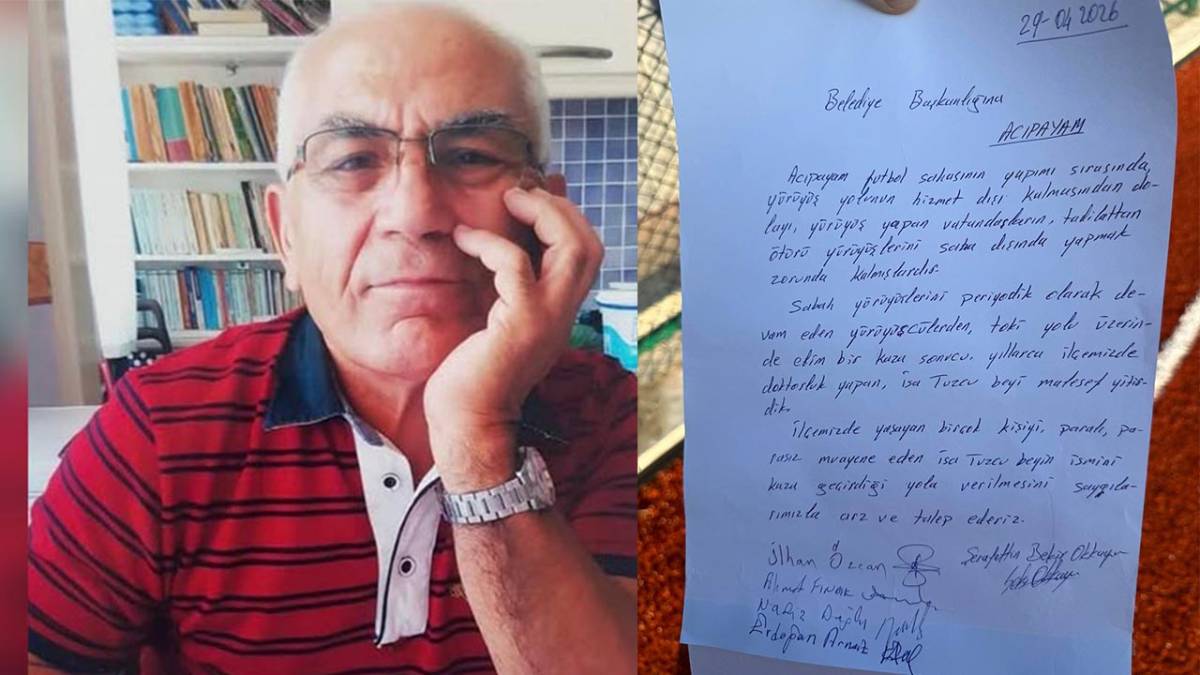 29-04 2026
Belediye Başkanlığına
ACIPAYAM
Acıpayam futbol sahasının yapımı sırasında,
yürüyüş yolunun hizmet dışı kalmasından do-
layı, yürüyüş yapan vatandaşların, tadilattan
ötürü yürüyüşlerini saha dışında yapmak
zorunda kalmışlardır.
Sabah yürüyüşlerini periyodik olarak de-
vam eden yürüyüşcülerden, toki yolu üzerin-
de elim bir kaza sonucu, yıllarca ilçemizde
doktorluk yapan, İsa Tuzcu beyi malesef yitir-
dik.
İlçemizde yaşayan birçok kişiyi, paralı, pa-
rasız muayene eden İsa Tuzcu beyin ismini
kaza geçirdiği yola verilmesini saygıla-
rımızla arz ve talep ederiz.
İlhan Özcan
Şerafettin Bekir
Ahmet
Nafiz
Erdoğan